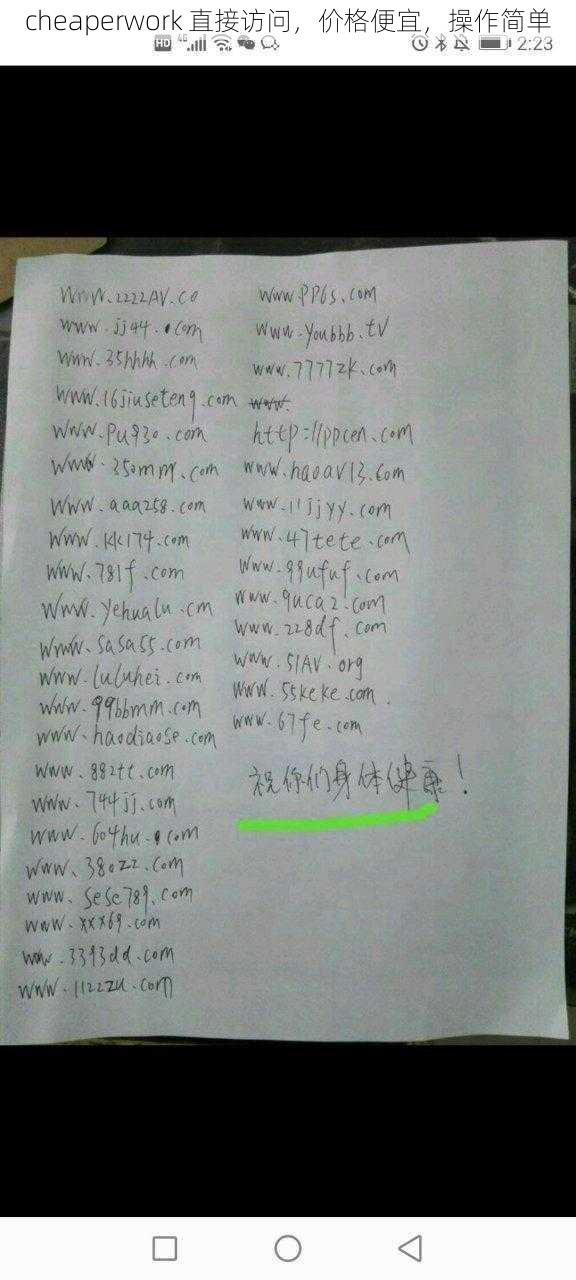 cheaperwork 直接访问，价格便宜，操作简单
HD 4G 2:23
www.2222AV.co
www.jj44.com
www.35hhhh.com
www.16jiuseteng.com
www.pu930.com
www.350mm.com
www.aaa258.com
www.kk174.com
www.781f.com
www.yehualu.cm
www.sasa55.com
www.luluhei.com
www.99bbmm.com
www.haodiaose.com
www.882tt.com
www.744jj.com
www.604hu.com
www.380zz.com
www.sese789.com
www.xxx69.com
www.3393dd.com
www.1122zu.com
www.pp6s.com
www.youbbb.tv
www.7777zk.com
www.
http://ppcen.com
www.haoav13.com
www.11jjyy.com
www.47tete.com
www.99ufuf.com
www.9uca2.com
www.228df.com
www.51AV.org
www.55keke.com
www.67fe.com
祝你们身体健康！